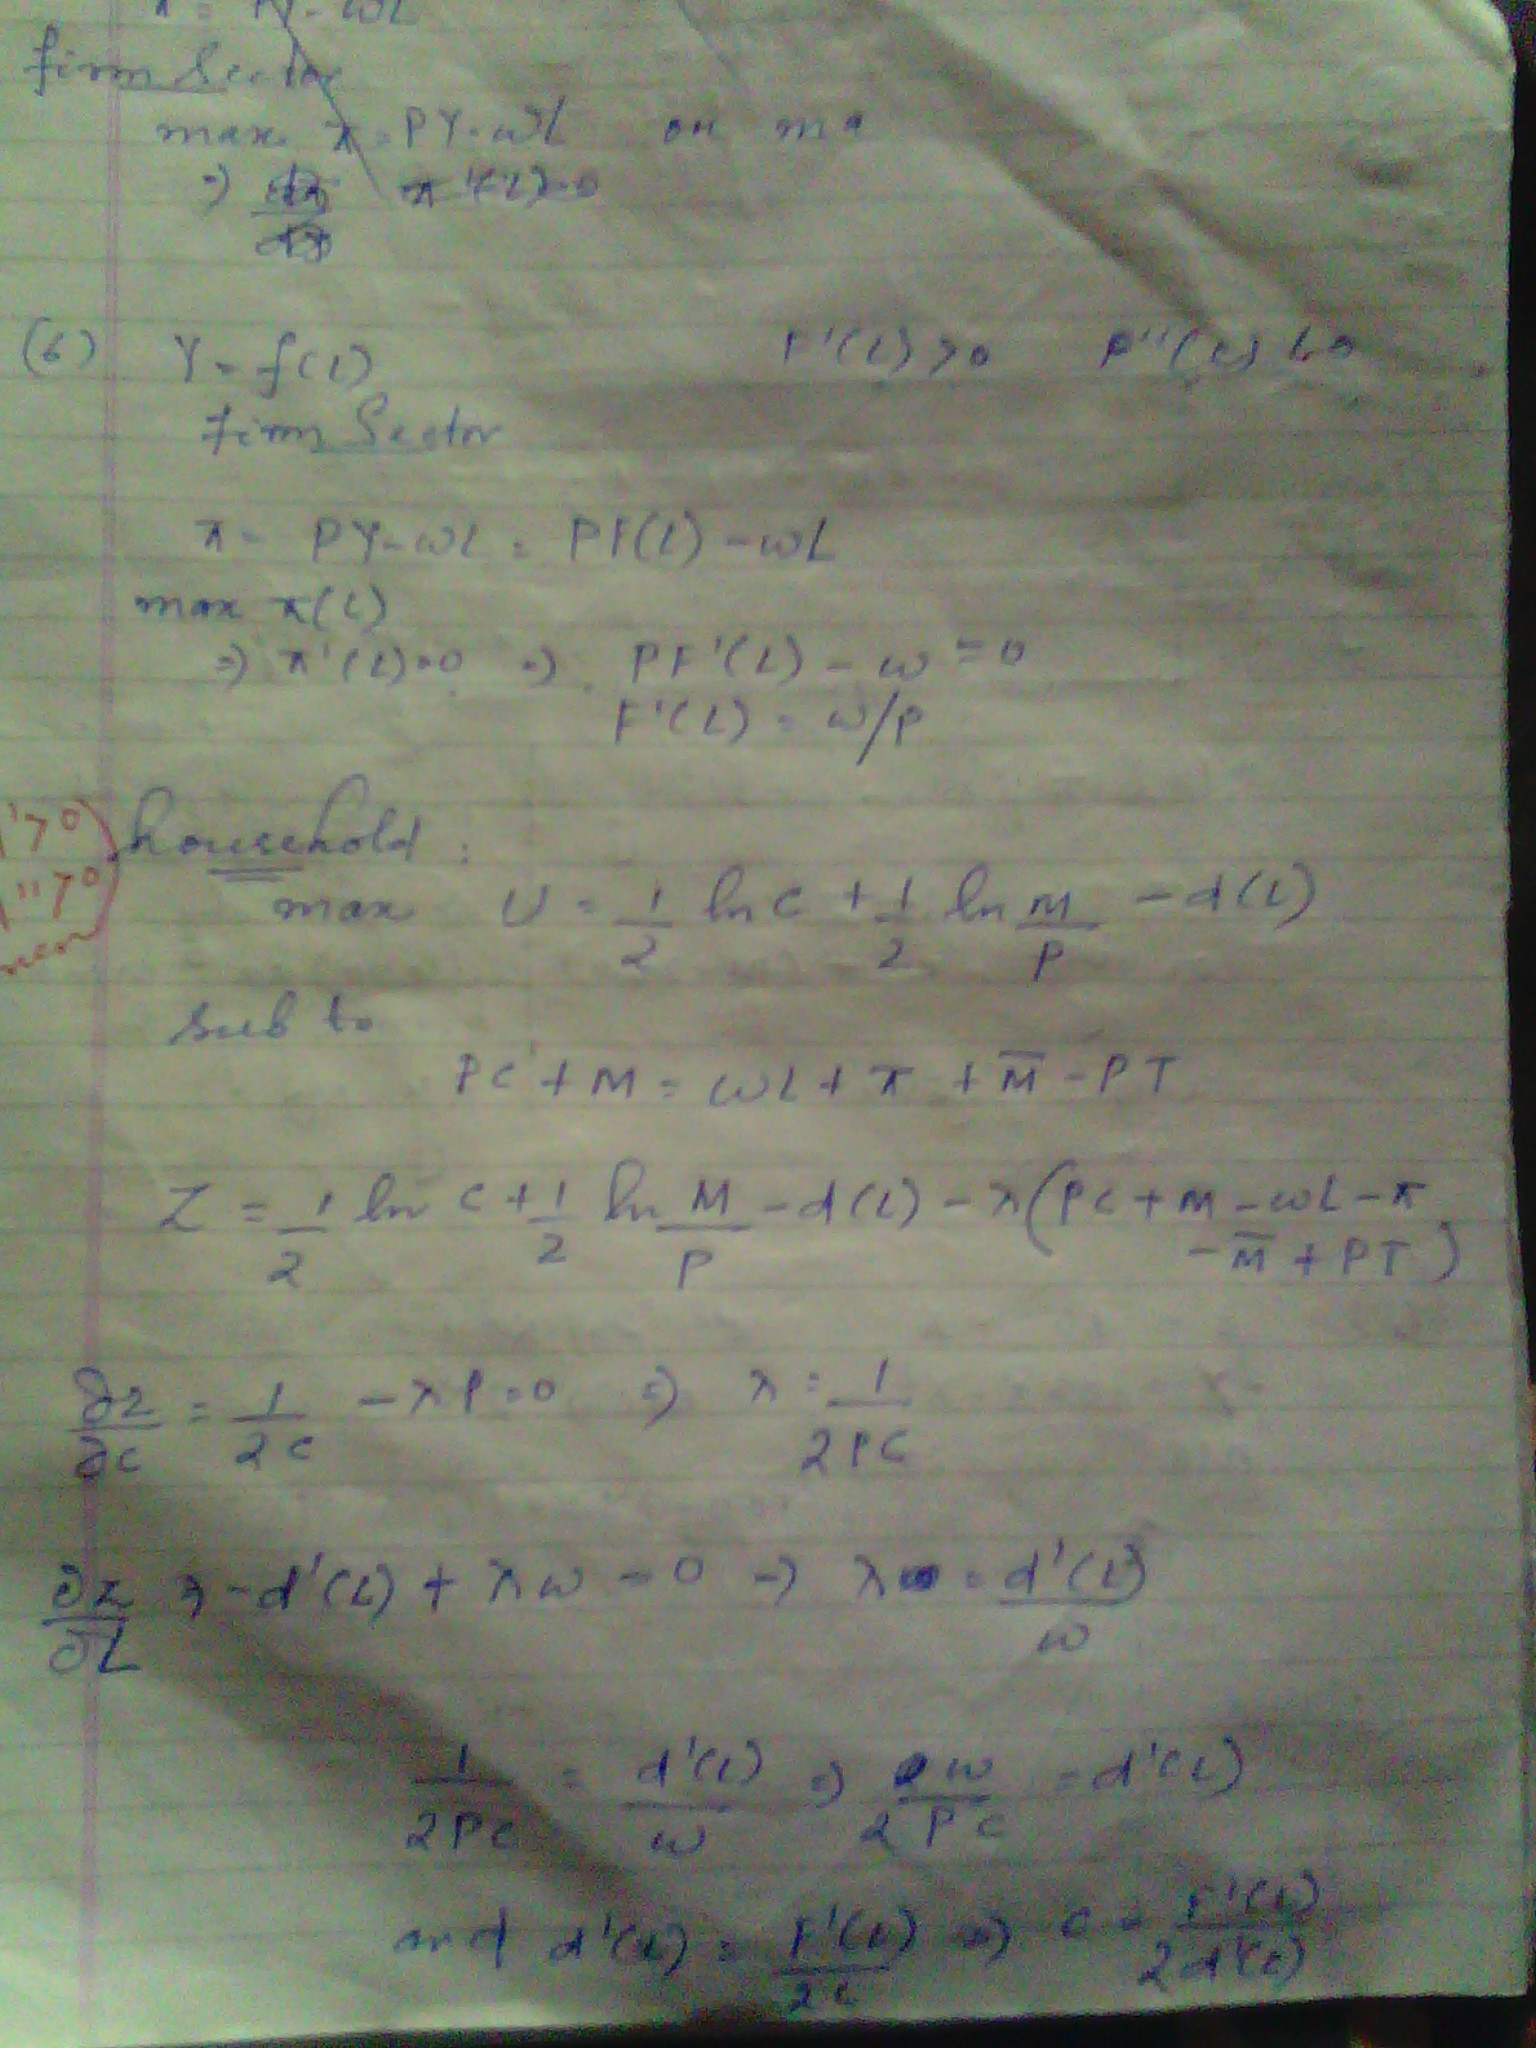 π = PY - ωL
firm Sector
max π = PY - ωL or ma
⇒ π'(L)=0
(6) Y = f(L) F'(L) >0 F''(L) <0
firm Sector
π = PY - ωL = PF(L) - ωL
max π(L)
⇒ π'(L)=0 ⇒ PF'(L) - ω = 0
F'(L) = ω/P
'>0
''>0
household :
max U = 1/2 ln C + 1/2 ln M/P - d(L)
sub to
PC + M = ωL + π + M̅ - PT
Z = 1/2 ln C + 1/2 ln M/P - d(L) - λ(PC + M - ωL - π
- M̅ + PT)
∂Z/∂C = 1/2C - λP = 0 ⇒ λ = 1/2PC
∂Z/∂L ⇒ -d'(L) + λω = 0 ⇒ λ = d'(L)/ω
1/2PC = d'(L)/ω ⇒ ω/2PC = d'(L)
and d'(L) = F'(L)/2C ⇒ C = F'(L)/2d'(L)